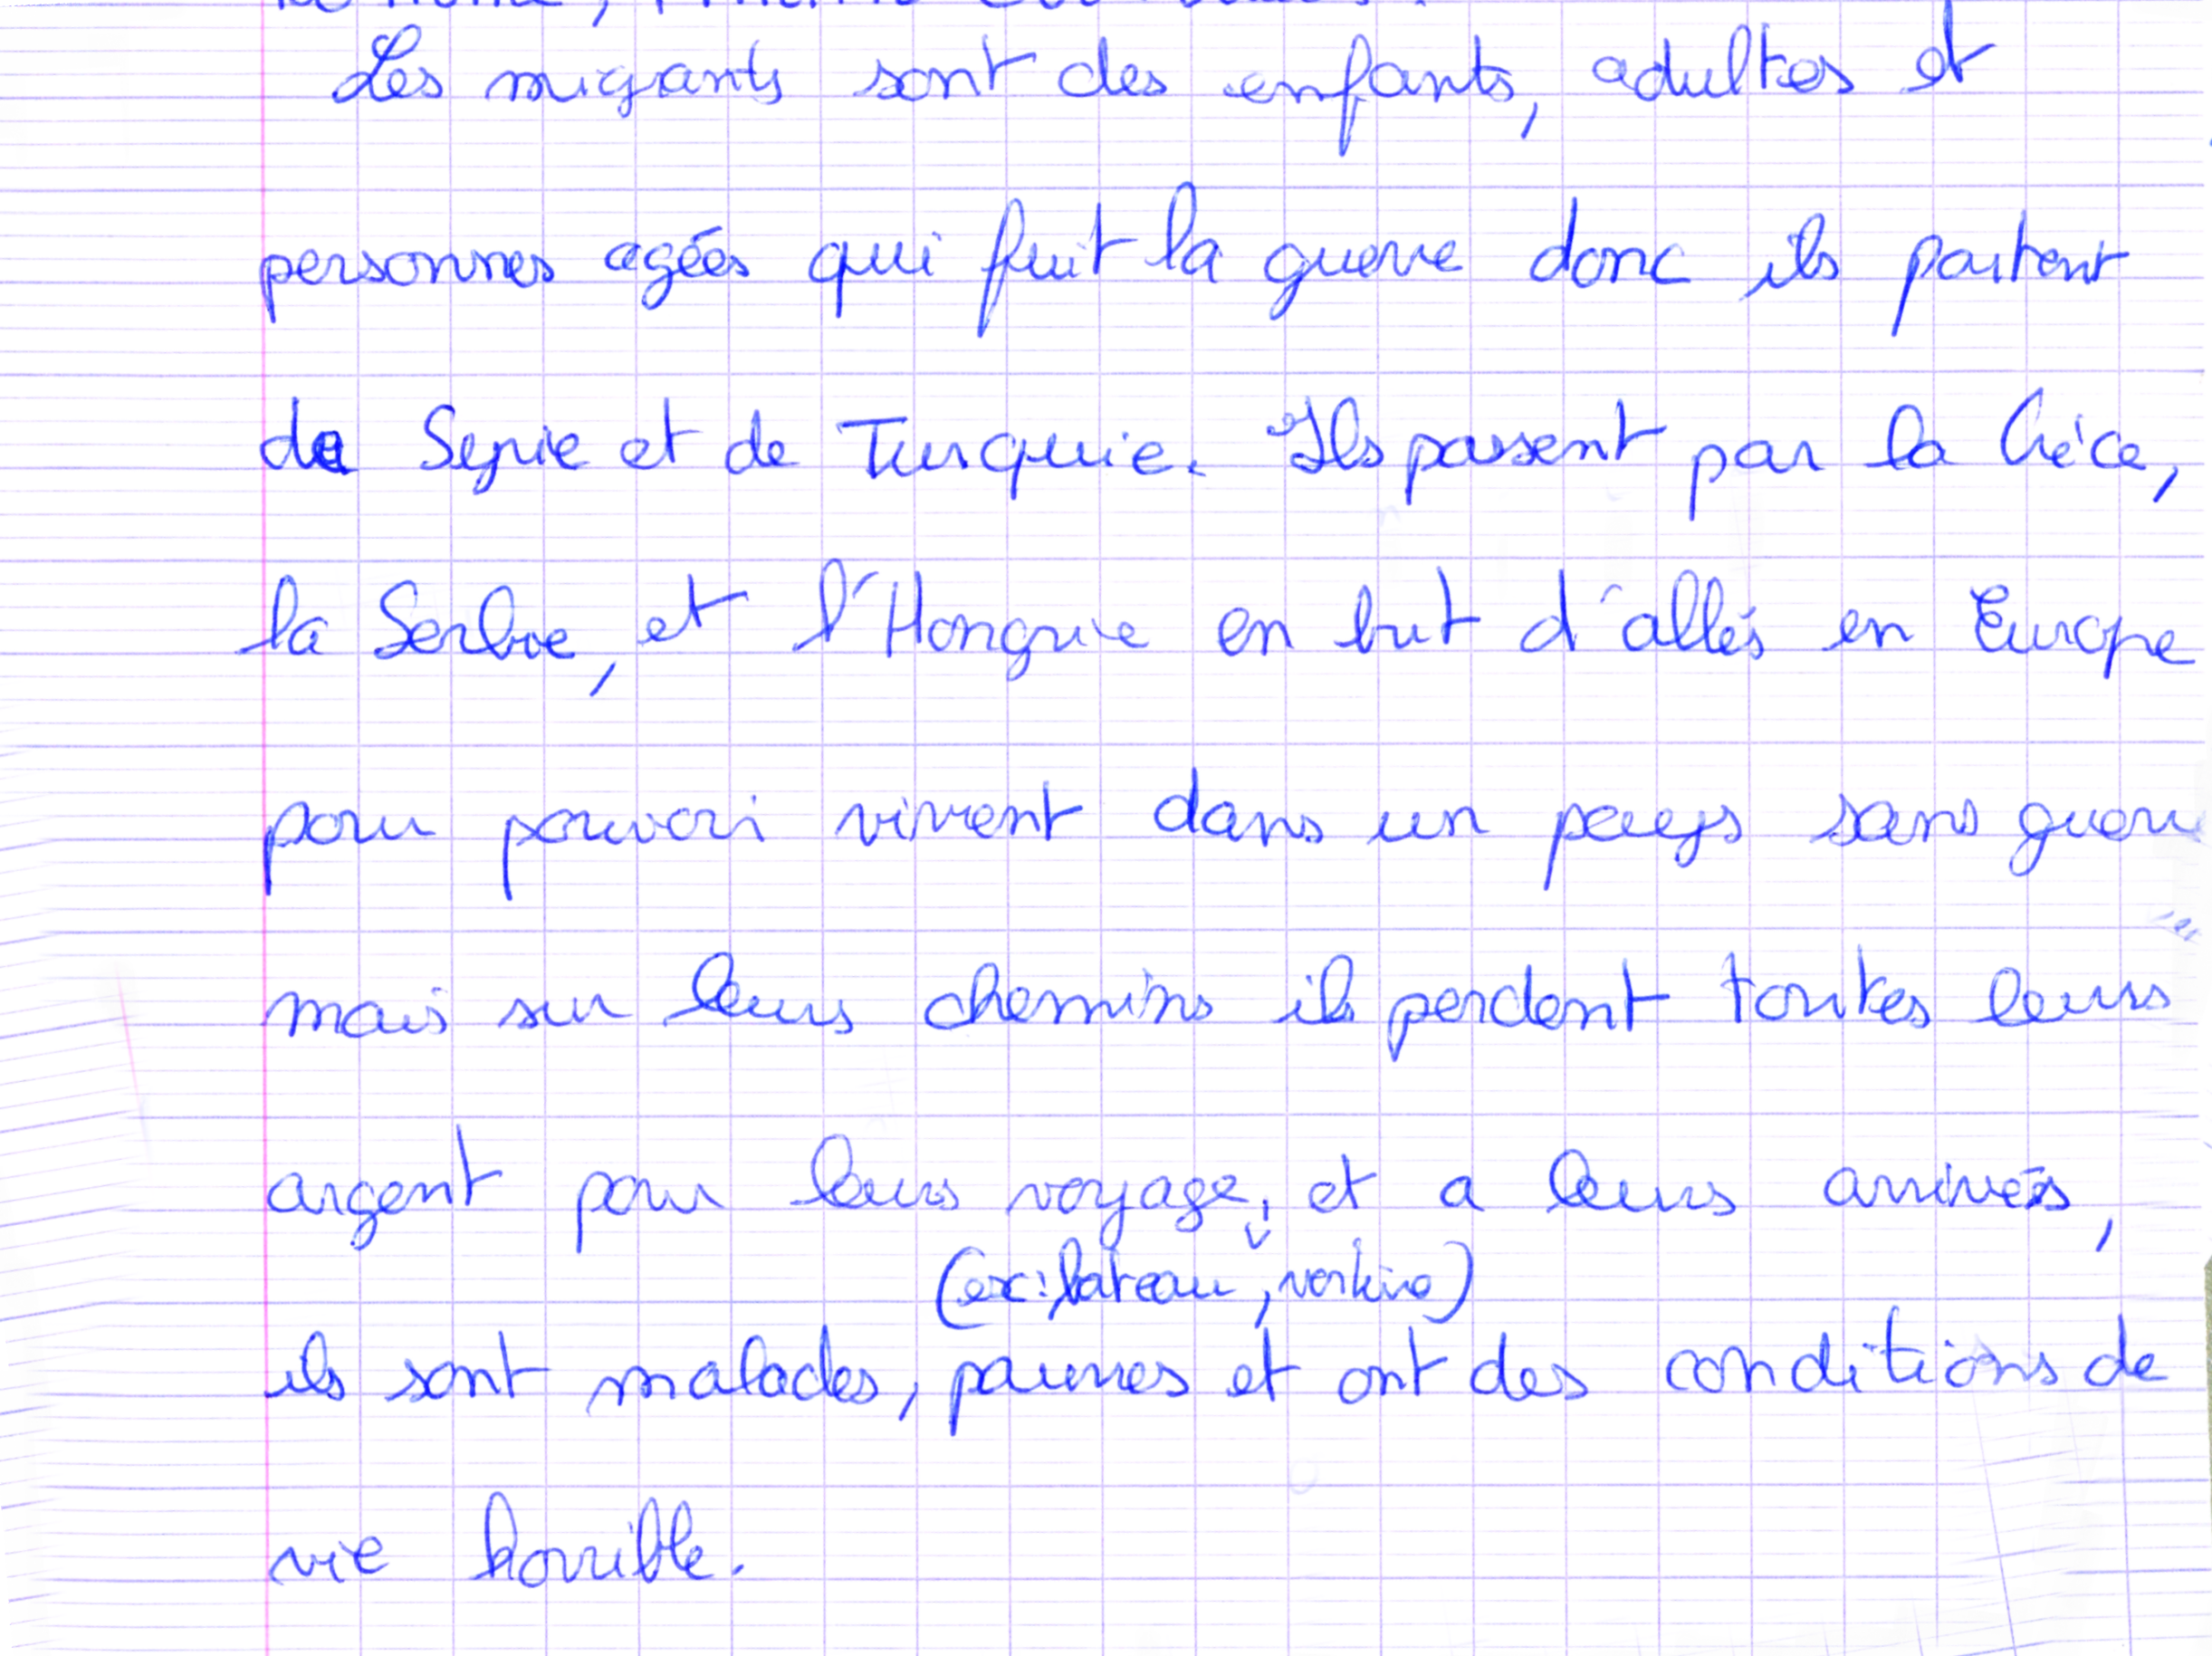 Les migrants sont des enfants, adultes et
personnes agées qui fuit la guerre donc ils partent
de Syrie et de Turquie. Ils passent par la Gréce,
la Serbie, et l'Hongrie en but d'allés en Europe
pour pouvoir vivrent dans un pays sans guerre
mais sur leurs chemins ils perdent toutes leurs
argent pour leurs voyage, et a leurs arrivés,
(ex: bateau,
ils sont malades, pauvres et ont des conditions de
vie horrible.